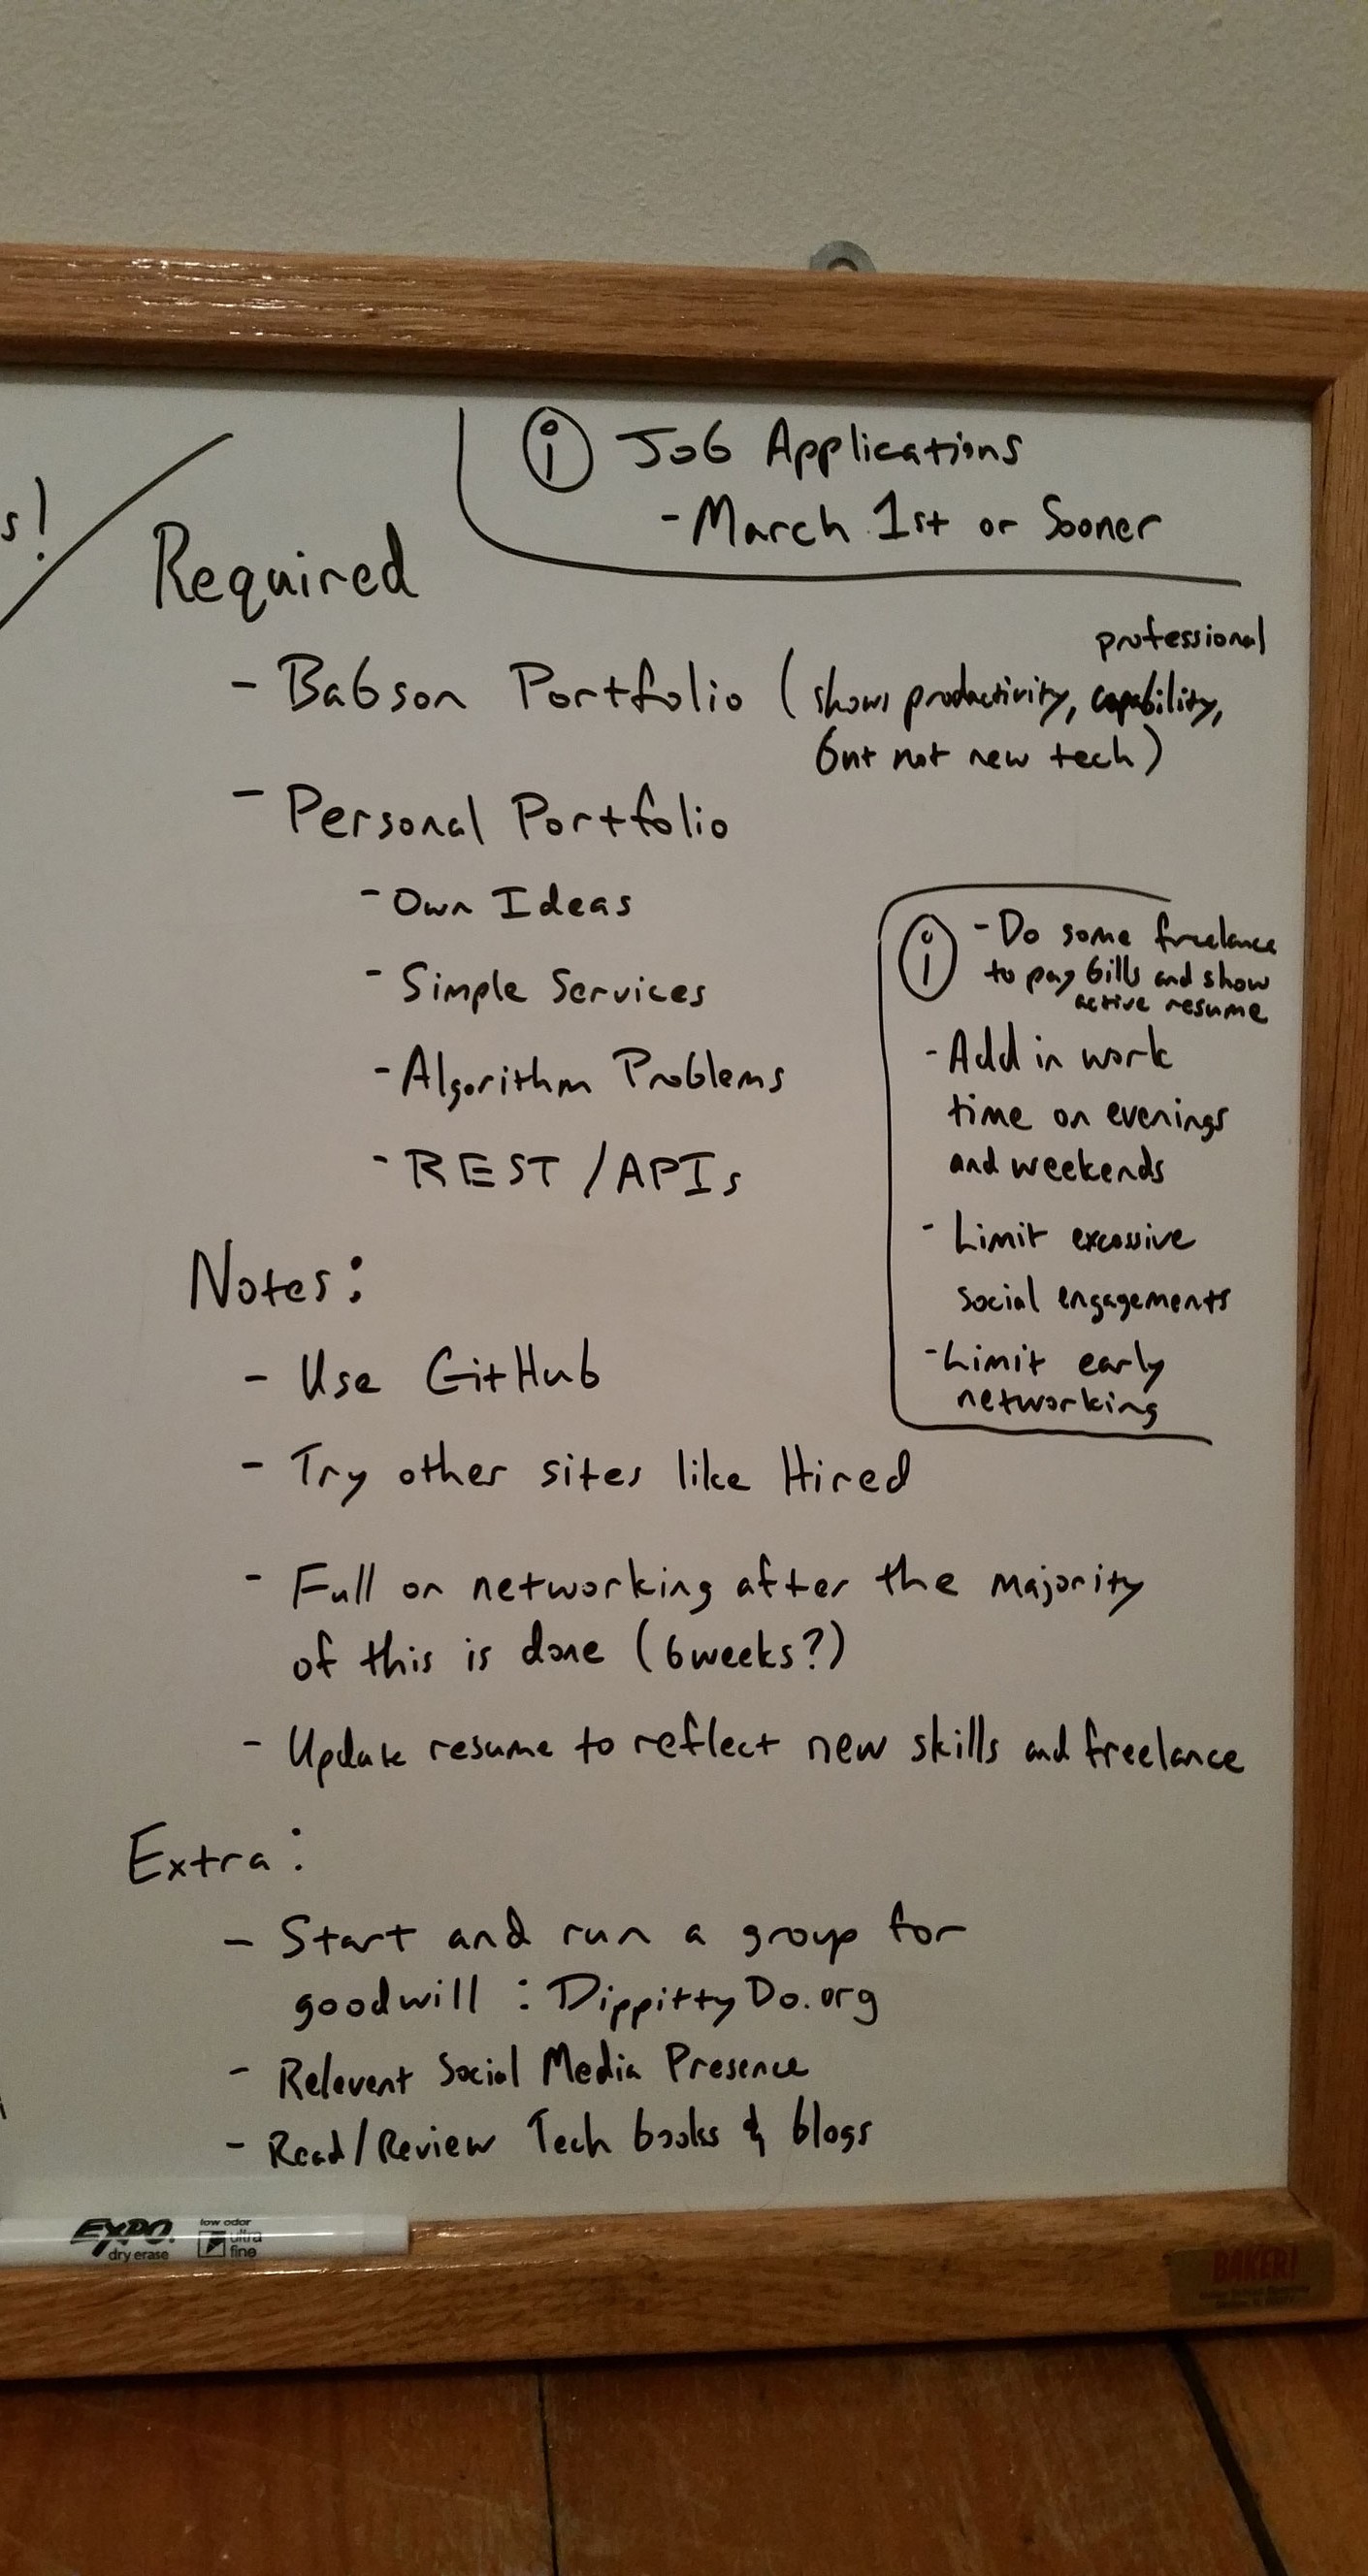 s!
i Job Applications
- March 1st or Sooner
Required
professional
- Babson Portfolio (shows productivity, capability,
but not new tech)
- Personal Portfolio
- Own Ideas
- Simple Services
- Algorithm Problems
- REST / APIs
i - Do some freelance
to pay bills and show
active resume
- Add in work
time on evenings
and weekends
- Limit excessive
social engagements
- Limit early
networking
Notes:
- Use GitHub
- Try other sites like Hired
- Full on networking after the majority
of this is done (6 weeks?)
- Update resume to reflect new skills and freelance
Extra:
- Start and run a group for
goodwill : DippittyDo.org
- Relevent Social Media Presence
- Read/Review Tech books & blogs
EXPO. low odor
dry erase ultra
fine
BAKER!